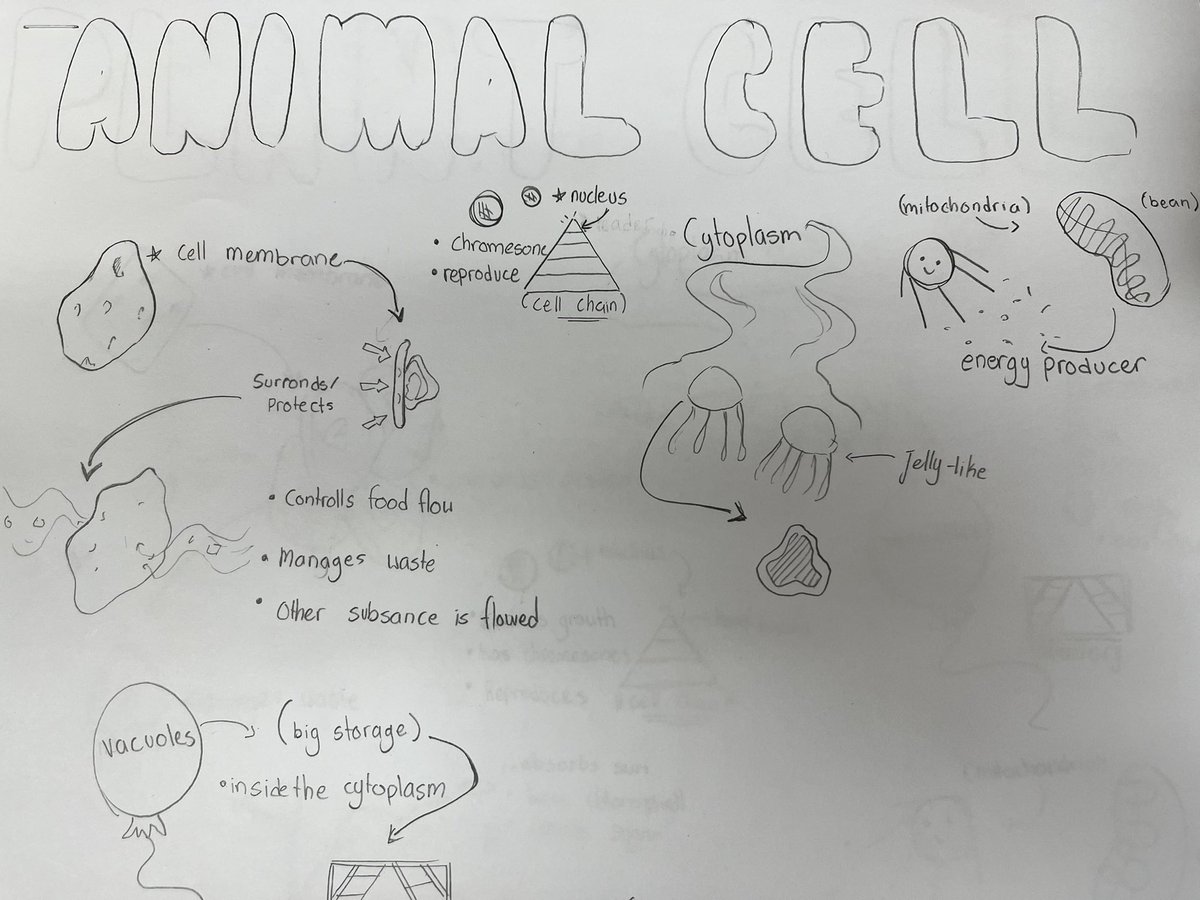 ANIMAL CELL
* nucleus
• chromesone
• reproduce
(cell chain)
* Cell membrane
Surronds/
Protects
• Controlls food flow
• Manages waste
• Other subsance is flowed
Cytoplasm
Jelly-like
(mitochondria)
(bean)
energy producer
vacuoles
(big storage)
• inside the cytoplasm